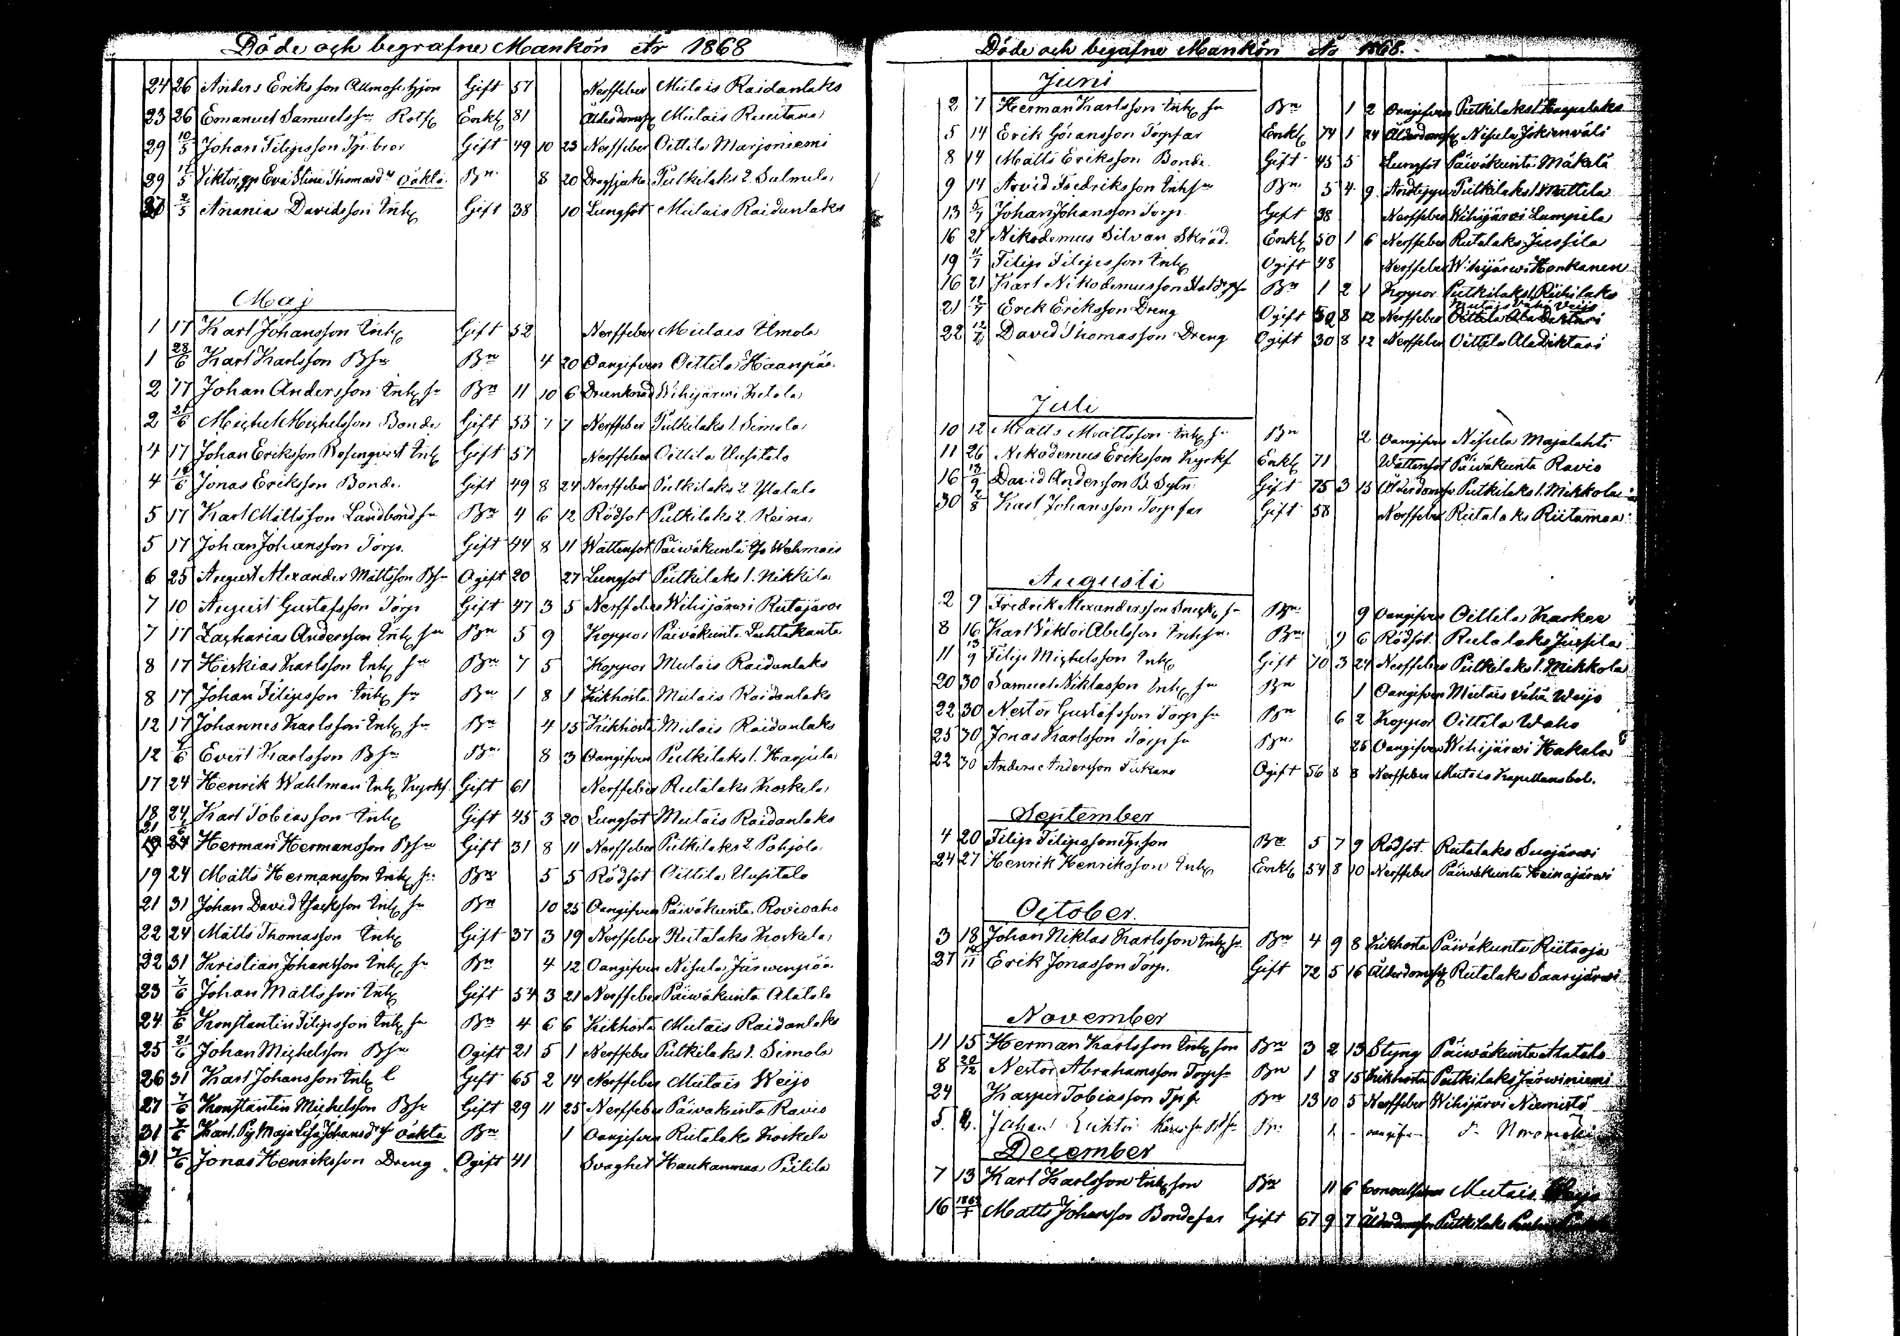 Döde och begrafne Mankön År 1868
24 26 Anders Eriksson Gift 57 Nerffeber Mutais Raidanlaks
23 26 Emanuel Samuelss:n Rotf Enkl 81 Ålderdomsf Mutais Ruutana
29 10/5 Johan Filipsson Gift 49 10 23 Nerffeber Oittila Marjoniemi
29 Viktor, Eva Stina Thomasd:r oäkta Bn 8 20 Dragsjuka Putkilaks 2. Salmela
2/5 Anania Davidsson Inh Gift 38 10 Lungsot Mutais Raidanlaks
Maj
1 17 Karl Johansson Inh Gift 52 Nerffeber Mutais Umola
1 28/6 Karl Karlsson Bsn Bn 4 20 Oangifven Oittila Haanpää
2 17 Johan Andersson Inh sn Bn 11 10 6 Drunknad Wihijärvi Ketola
2 21/6 Michel Michelsson Bonde Gift 53 7 7 Nerffeber Putkilaks 1 Simola
4 17 Johan Eriksson Rosenqvist Inh Gift 57 Nerffeber Oittila Uusitalo
4 14/6 Jonas Eriksson Bonde Gift 49 8 24 Nerffeber Putkilaks 2 Ylätalo
5 17 Karl Mattsson Landbond sn Bn 4 6 12 Rödsot Putkilaks 2. Reina
5 17 Johan Johansson Torp. Gift 44 8 11 Wattensot Päiväkunta Wehmais
6 25 August Alexander Mattsson Bsn Ogift 20 27 Lungsot Putkilaks 1. Nikkila
7 10 August Gustafsson Torp Gift 47 3 5 Nerffeber Wihijärvi Rutajärvi
7 17 Zacharias Andersson Inh sn Bn 5 9 Koppor Päiväkunta Luhtakanta
8 17 Hiskias Karlsson Inh sn Bn 7 5 Koppor Mutais Raidanlaks
8 17 Johan Filipsson Inh sn Bn 1 8 1 Kikhosta Mutais Raidanlaks
12 17 Johannes Karlsson Inh sn Bn 4 15 Kikhosta Mutais Raidanlaks
12 7/6 Evert Karlsson Bsn Bn 8 3 Oangifven Putkilaks 1. Harjula
17 24 Henrik Wahlman Inh Gift 61 Nerffeber Rutalaks Koskela
18 24 Karl Tobiasson Inh Gift 45 3 20 Lungsot Mutais Raidanlaks
21 7/6 Herman Hermansson Bsn Gift 31 8 11 Nerffeber Putkilaks 2 Pohjola
19 24 Matts Hermansson Inh sn Bn 5 5 Rödsot Oittila Uusitalo
21 31 Johan David Isacksson Inh sn Bn 10 25 Oangifven Päiväkunta Rovioaho
22 24 Matts Thomasson Inh Gift 37 3 19 Nerffeber Rutalaks Koskela
22 31 Kristian Johansson Inh sn Bn 4 12 Oangifven Nisula Järvenpää
23 7/6 Johan Mattsson Inh Gift 54 3 21 Nerffeber Päiväkunta Alatalo
24 7/6 Konstantin Filipsson Inh sn Bn 4 6 6 Kikhosta Mutais Raidanlaks
25 21/6 Johan Michelsson Bsn Ogift 21 5 1 Nerffeber Putkilaks 1. Simola
26 31 Karl Johansson Inh Gift 65 2 14 Nerffeber Mutais Weijo
27 7/6 Konstantin Michelsson Bsn Gift 29 11 25 Nerffeber Päiväkunta Ravio
31 7/6 Karl, Pig Maja Lisa Johansd:r oäkta Bn 1 Oangifven Rutalaks Koskela
31 7/6 Jonas Henriksson Dreng Ogift 41 Svaghet Haukanmaa Piilila
Döde och begrafne Mankön År 1868.
Juni
2 7 Herman Karlsson Inh sn Bn 1 2 Oangifven Putkilaks 1
5 14 Erik Göransson Torpfar Enkl 74 1 24 Ålderdomsf Nisula Jokienväli
8 14 Matts Eriksson Bonde Gift 45 5 Lungsot Päiväkunta Mäkelä
9 14 Arvid Fredriksson Inh sn Bn 5 4 9 Putkilaks 1 Mattila
13 5/7 Johan Johansson Torp Gift 38 Nerffeber Wihijärvi Lumpila
16 21 Nikodemus Silvan Skräd. Enkl 50 1 6 Nerffeber Rutalaks Jussila
19 11/7 Filip Filipsson Inh Ogift 48 Nerffeber Wihijärvi Honkanen
16 21 Karl Nikodemusson Bn 1 2 1 Koppor Putkilaks 1
Mutais Vähä Veijo
21 12/7 Erik Eriksson Dreng Ogift 8 12 Nerffeber Oittila Ala Diktari
22 12/7 David Thomasson Dreng Ogift 30 8 12 Nerffeber Oittila Ala Diktari
Juli
10 12 Matts Mattsson Inh sn Bn 2 Oangifven Nisula Majalahti
11 26 Nikodemus Eriksson Enkl 71 Wattensot Päiväkunta Ravio
16 13/9 David Andersson B. Sytn Gift 75 3 15 Ålderdomsf Putkilaks 1. Mikkola
30 2/8 Karl Johansson Torpfar Gift 58 Nerffeber Rutalaks Riitamaa
Augusti
2 9 Fredrik Alexandersson sn Bn 9 Oangifven Oittila Karkea
8 16 Karl Viktor Abelsson Inh sn Bn 9 6 Rödsot Rutalaks Jussila
11 13/9 Filip Michelsson Inh Gift 70 3 24 Nerffeber Putkilaks 1. Mikkola
20 30 Samuel Niklasson Inh sn Bn 1 Oangifven Mutais Vähä Weijo
22 30 Nestor Gustafsson Torp sn Bn 6 2 Koppor Oittila Waho
25 30 Jonas Karlsson Torp sn Bn 25 Oangifven Wihijärvi Hakala
22 30 Anders Andersson Tiikana Ogift 56 8 8 Nerffeber Mutais Kapellansbol.
September
4 20 Filip Filipsson Tpson Bn 5 7 9 Rödsot Rutalaks Suojärvi
24 27 Henrik Henriksson Inh Enkl 54 8 10 Nerffeber Päiväkunta Heinajärvi
October.
3 18 Johan Niklas Karlsson Inh sn Bn 4 9 8 Kikhosta Päiväkunta Riitaoja
27 Erik Jonasson Torp. Gift 72 5 16 Ålderdomsf Rutalaks Saarijärvi
November
11 15 Herman Karlsson Inh son Bn 3 2 13 Styng Päiväkunta Alatalo
8 20/12 Nestor Abrahamsson Torpsn Bn 1 8 15 Kikhosta Putkilaks Järviniemi
24 Kasper Tobiasson Bn 13 10 5 Nerffeber Wihijärvi Niemistö
5. Johan Bn 1
December
7 13 Karl Karlsson Inh son Bn 11 6 Mutais
16 1869/1 Matts Johansson Bondefar Gift 67 9 7 Ålderdomsf Putkilaks